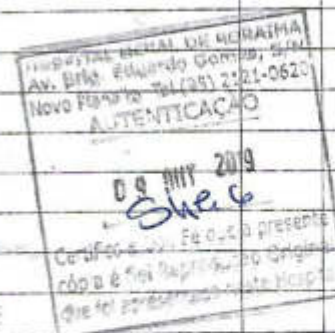 HOSPITAL GERAL DE RORAIMA
Av. Brig. Eduardo Gomes, S/N
Novo Planalto Tel.(95) 2121-0620
AUTENTICAÇÃO
09 2019
Certifico e dou Fé que a presente
cópia é fiel Reprodução Original
que foi apresentado neste Hosp